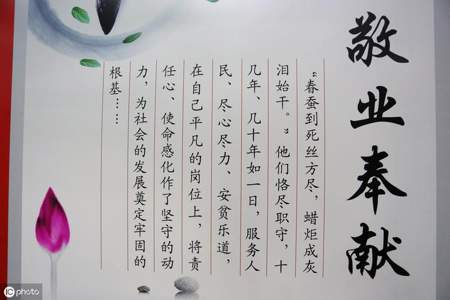 敬业奉献
“春蚕到死丝方尽，蜡炬成灰
泪始干。”他们恪尽职守，十
几年、几十年如一日，服务人
民、尽心尽力、安贫乐道，
在自己平凡的岗位上，将责
任心、使命感化作了坚守的动
力，为社会的发展奠定牢固的
根基……
icphoto